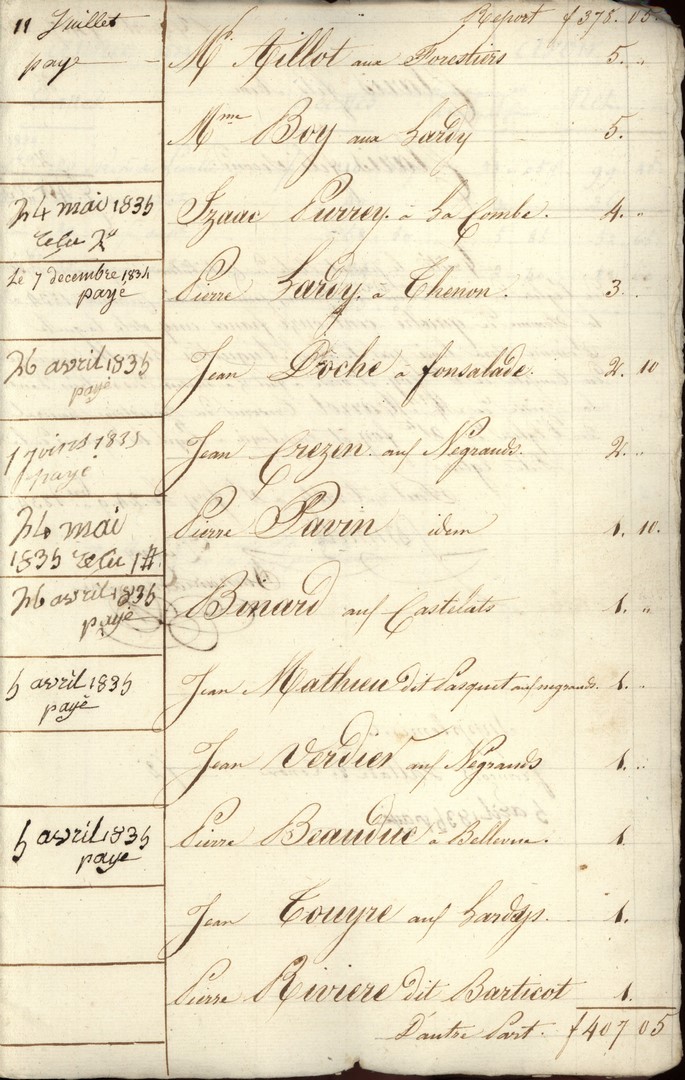 Report f 378. 05.
11 Juillet
payé
Mr. Aillot aux Forestiers 5. "
Mme Boy aux Lardy 5.
24 mai 1835
Izaac Purrey. à La Combe. 4. "
Le 7 decembre 1834
payé
Pierre Lardy. à Thenon. 3 "
26 avril 1835
payé
Jean Doche à fonsalade. 2. 10
1 juin 1835
payé
Jean Crezen. aux Négrauds. 2. "
24 mai
1835 recu 1#
Pierre Pavin idem 1. 10.
26 avril 1835
payé
Binard aux Castelats 1. "
5 avril 1835
payé
Jean Mathieu dit Pasquet aux negrauds. 1. "
Jean Verdier aux Négrauds 1. "
5 avril 1835
payé
Pierre Beauduc à Bellevue. 1.
Jean Touyre aux Lardys. 1.
Pierre Riviere dit Barticot 1.
D'autre Part. f 407 05